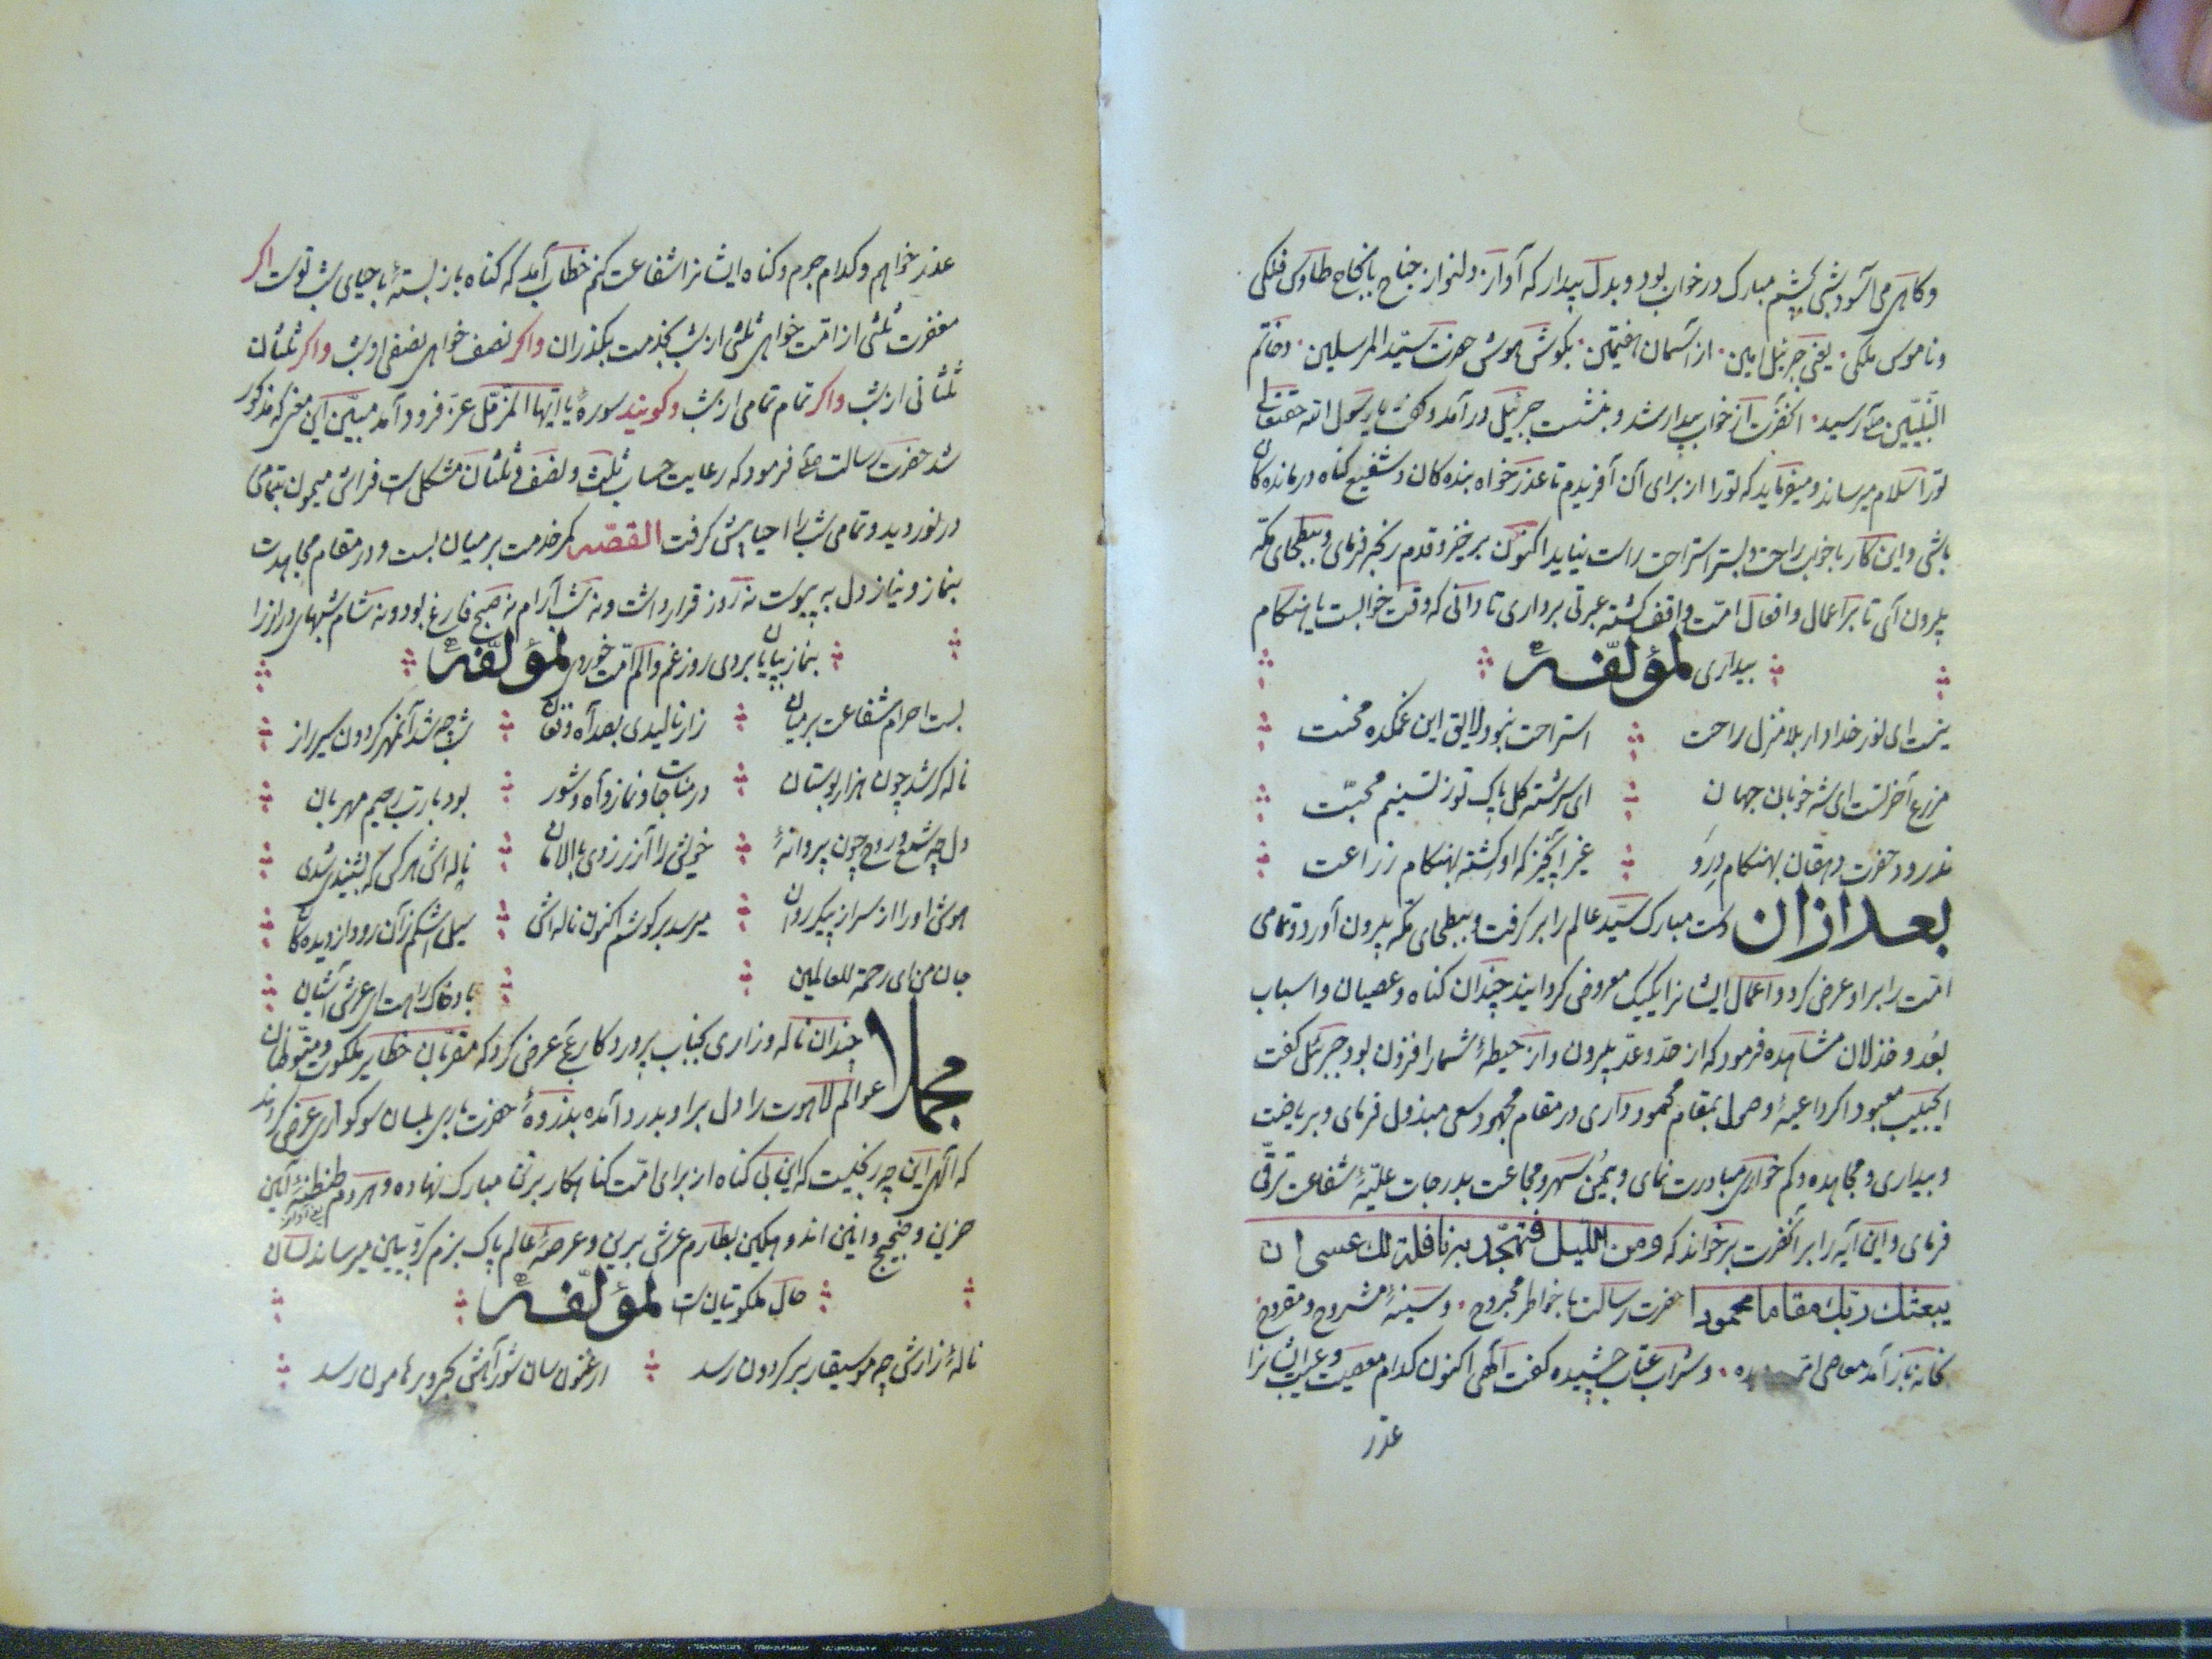 و کاهی می آسود شبی بچشم مبارک در خواب بود و بدل بیدار که آواز دلنواز جناح با نجاح طاوس فلکی
و ناموس ملکی یعنی جبرئیل امین از آسمان هفتمین بکوش هوش حضرت سید المرسلین و خاتم
النبیین صلعم رسید آنحضرت از خواب بیدار شد و بنشست جبرئیل در آمد و گفت یا رسول الله حقتعالی
تورا سلام میرساند و میفرماید که تورا از برای آن آفریدم تا عذر خواه بنده کان و شفیع گناه درمانده کان
باشی و این کار با خواب راحت و بستر استراحت راست نیاید اکنون برخیز و قدم رنجه فرمای و ببطحای مکه
بیرون آی تا بر اعمال و افعال امت واقف کشته عبرتی برداری تا دانی که وقت خوابست یا هنکام
بیداری لمؤلفه
نیست ای نور خدا دار بلا منزل راحت استراحت نبود لایق این غمکده محنت
مزرع آخرتست ای شه خوبان جهان ای سرشته کل پاک تو ز تسنیم محبت
ندرود حضرت دهقان بهنکام درو غیر آنچیز که او کشته بهنکام زراعت
بعد ازان دست مبارک سید عالم را بر کرفت و ببطحای مکه بیرون آورد و تمامی
امت را بر او عرض کرد و اعمال ایشانرا یکیک معروض کردانید چندان کناه و عصیان و اسباب
بعد و خذلان مشاهده فرمود که از حد و عد بیرون و از حیطهٔ شمار افزون بود جبرئیل گفت
ایحبیب معبود اکر داعیهٔ وصول بمقام محمود داری در مقام مجهود سعی مبذول فرمای و بریاضت
و بیداری و مجاهده و کم خواری مبادرت نمای و بیمن سهر و مجاعت بدرجات علیهٔ شفاعت ترقی
فرمای و این آیه را بر آنحضرت بر خواند که ومن اللیل فتهجد به نافلة لك عسی ان
یبعثك ربك مقاما محمودا حضرت رسالت با خواطر مجروح و سینهٔ مشروح و مقروح
بخانه باز آمد معاصی و شراب عتاب چشیده گفت آلهی اکنون کدام معصیت و عیب ایشانرا
عذر
عذر خواهم و کدام جرم و کناه ایشانرا شفاعت کنم خطاب آمد که کناه باز بستهٔ با حیای شب توست اکر
مغفرت ثلثی از امت خواهی ثلثی از شب بخدمت بکذران واکر نصف خواهی نصفی از شب واکر ثلثان
ثلثانی از شب واکر تمام تمامی از شب و کویند سورهٔ یا ایها المزمل عز فرود آمد مبین این معنی که مذکور
شد حضرت رسالت صلعم فرمود که رعایت حساب ثلث و نصف و ثلثان مشکل است فراش میمون بتمامی
در نوردید و تمامی شب را احیا پیش کرفت القصه کمر خدمت بر میان بست و در مقام مجاهدت
بنماز و نیاز دل به پیوست نه روز قرار داشت و نه شب آرام نه صبح فارغ بود و نه شام شبهای دراز را
بنماز بپایان بردی روز غم و الم امت خوردی لمؤلفه
بست احرام شفاعت بر میان زار نالیدی بصد آه و فغان شب چه شد آنمهر کردون سیر راز
ناله کر شد چون هزار بوستان در مناجات و نماز و آه و شور بود با رب رحیم مهربان
دل چه شمع و روح چون پروانهٔ خویش را آذر زدی بالامان ناله اش هر کس که بشنیدی شدی
هوش او را از سر از پیکر روان میرسد بر کوشم اکنون ناله اش سیل اشکم زآن رود از دیده کان
جان من ای رحمة للعالمین باد خاک راهت ای عرش آشیان
مجملا چندان ناله و زاری بجناب پروردکار عرض کرد که مقربان خطایر ملکوت و متوطنان
عوالم لاهوت را دل بر او بدرد آمده بذروهٔ حضرت باری بلسان سوکواری عرض کردند
که الهی این چه رنجیست که این بی کناه از برای امت کناهکار بر تن مبارک نهاده و هر دم طنطنهٔ انین
حزین و ضجیج و انین اندوهکین بطارم عرش برین و عرصهٔ عالم پاک بزم کروبیین میرساند لسان
حال ملکوتیان است لمؤلفه
نالهٔ زارش چه موسیقار بر کردون رسد ارغنون سان شور آهش بحر و بر هامون رسد